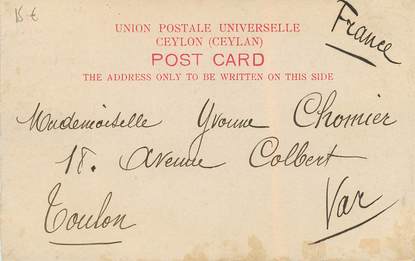 15 €
France
UNION POSTALE UNIVERSELLE
CEYLON (CEYLAN)
POST CARD
THE ADDRESS ONLY TO BE WRITTEN ON THIS SIDE
Mademoiselle Yvonne Chomier
18. Avenue Colbert
Toulon Var